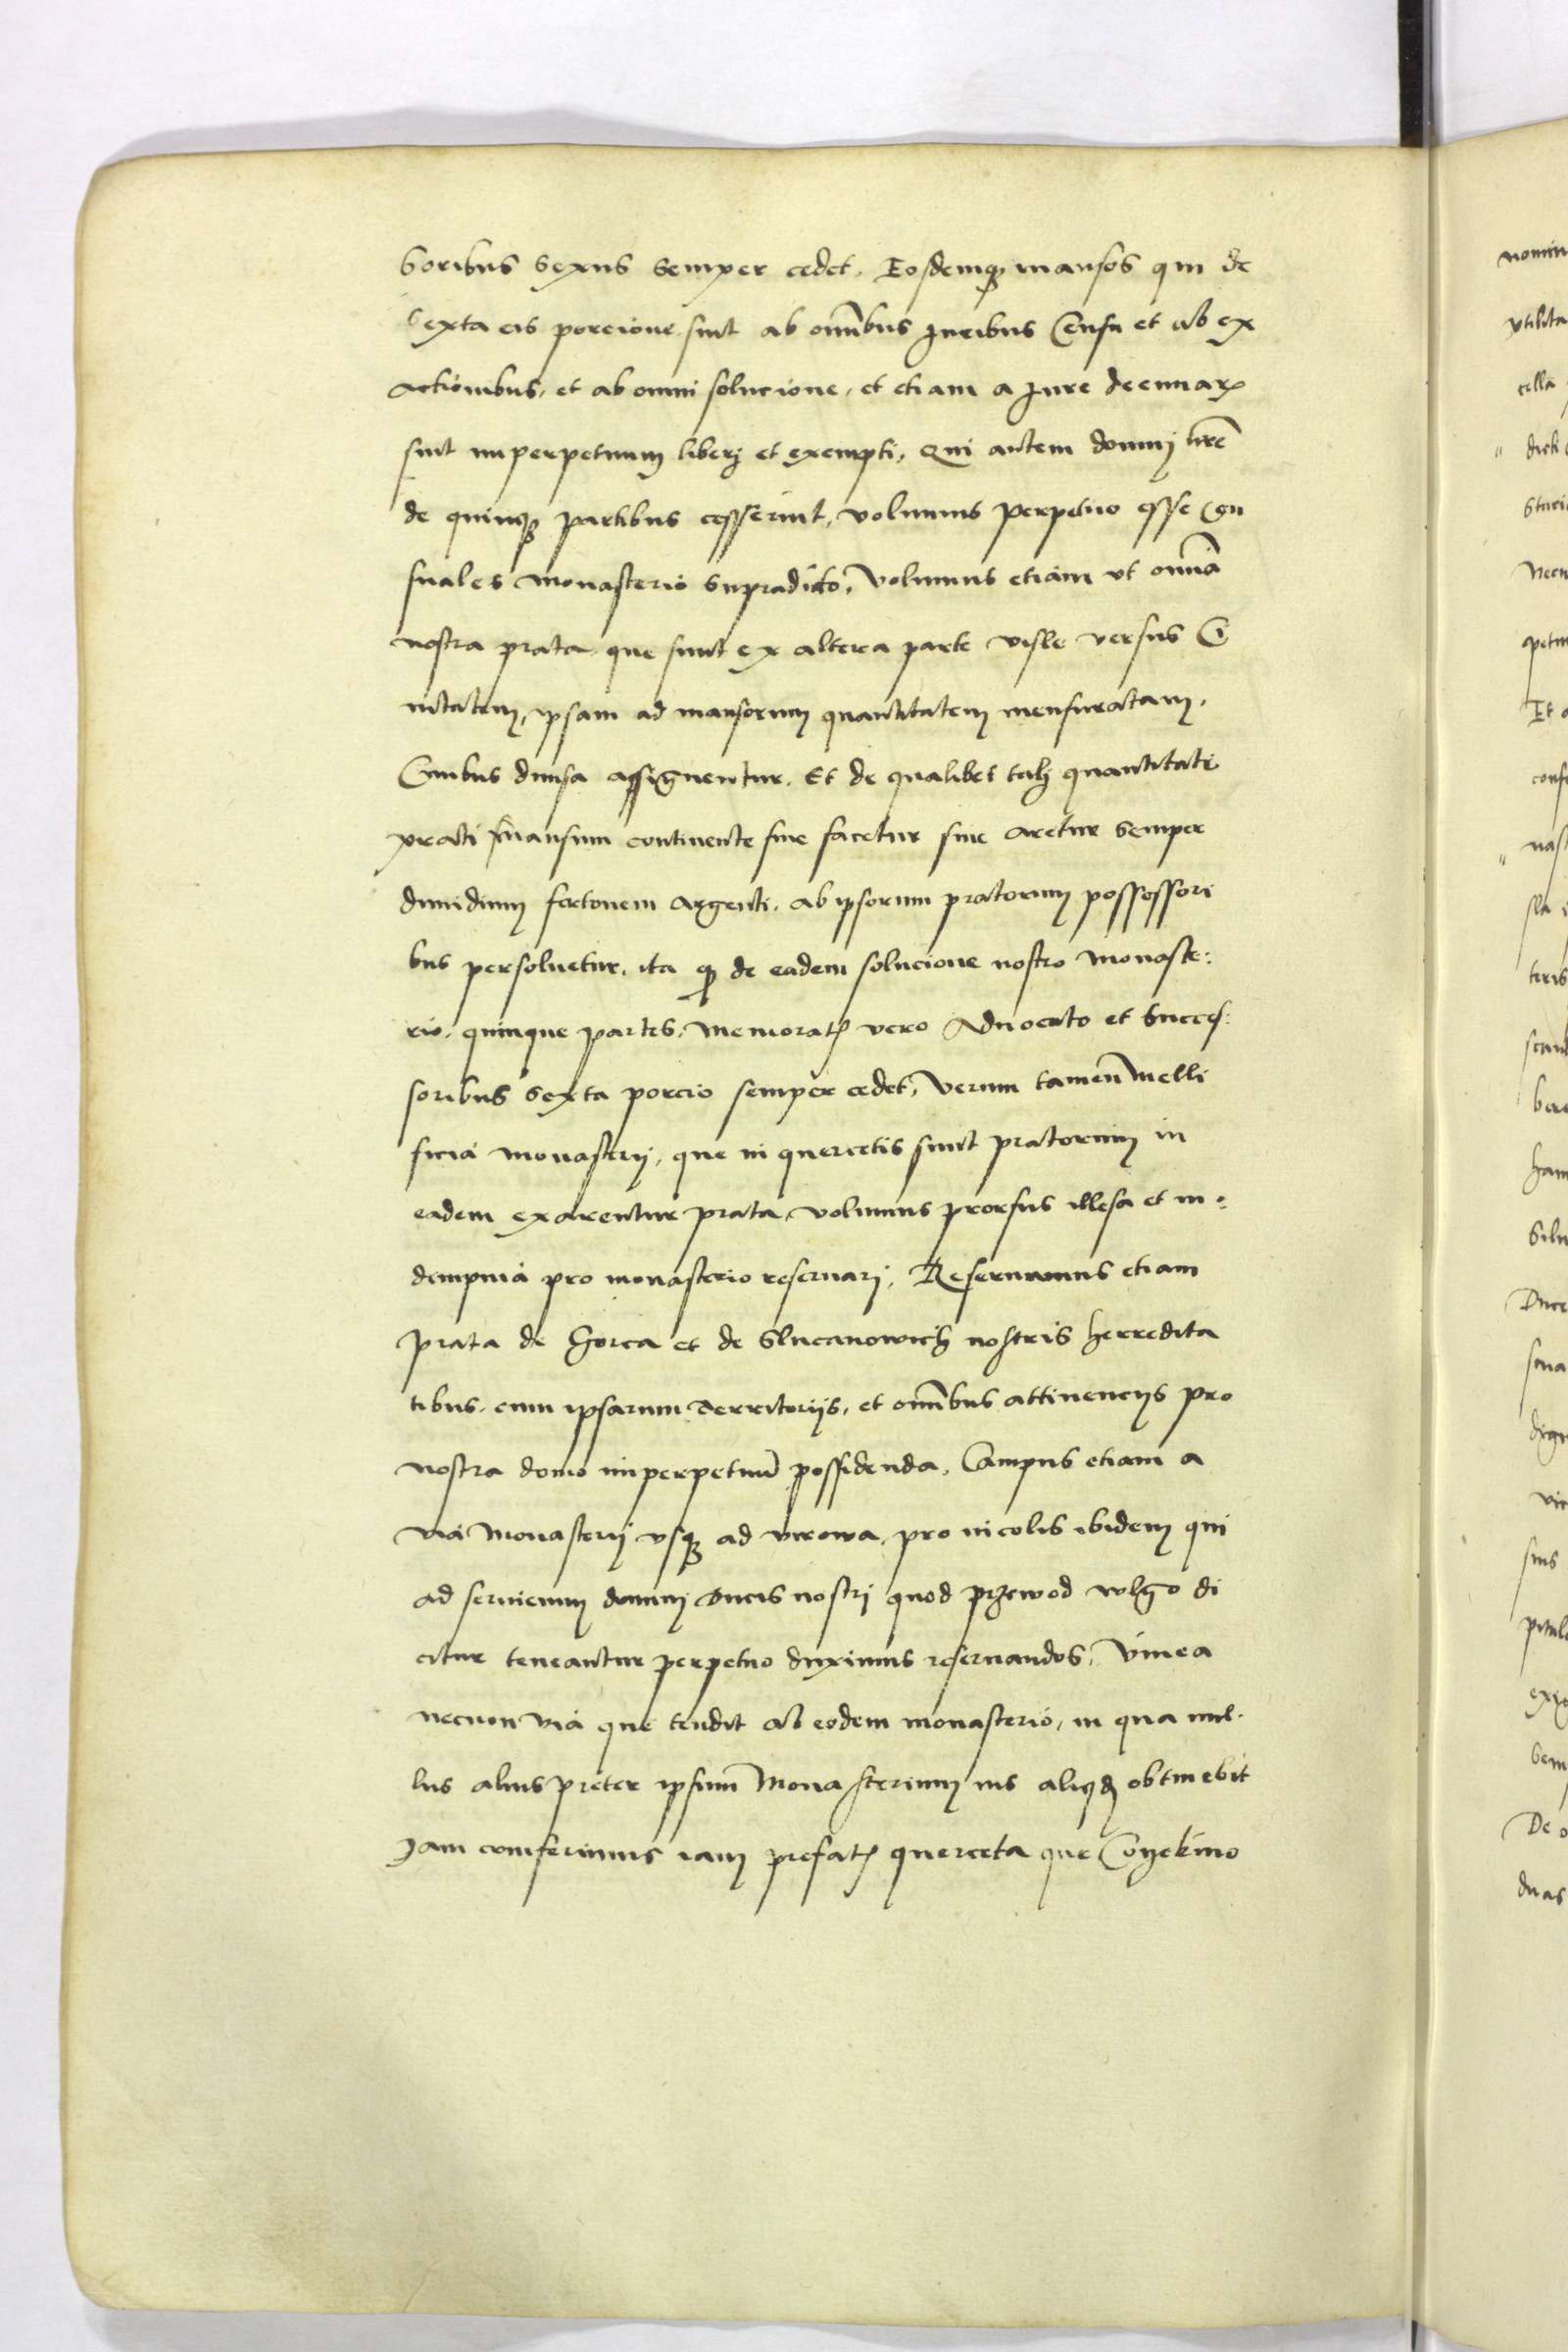 soribus sexus semper cedet. Eosdemq mansos qui de
sexta eis porcione sint ab om̄ibus Juribus Censu et ab ex
actionibus, et ab omni solucione, et etiam a Jure decimar
sint imperpetuum liberi et exempti, Qui autem domuj nr̄e
de quinq partibus cesserint, volumus perpetuo esse Cen
suales monasterio supradicto, Volumus etiam vt omnia
nostra prata que sunt ex altera parte visle versus Ci
uitatem, ipsam ad mansorum quantitatem mensuratam.
Ciuibus diuisa assignentur. Et de qualibet tali quantitate
prati mansum continente siue facetur siue aretur semper
dimidium fertonem argenti, ab ipsorum pratorum possessori
bus persoluetur, ita q de eadem solucione nostro Monaste:
rio, quinque partes, Memorat vero Aduocato et Succes:
soribus sexta porcio semper cedet, Verum tamen melli
ficia monasterij, que in quercetis sunt pratorum in
eadem exarentur prata, volumus prorsus illesa et in:
dempnia pro monasterio reseruarj, Reseruamus etiam
prata de Gorca et de Slucanowich nostris herredita
tibus, cum ipsarum Territorijs, et om̄ibus attinencijs pro
nostra domo imperpetuū possidenda, Campus etiam a
via Monasterij vsq ad virowa, pro incolis ibidem qui
ad seruicium dominj Ducis nostri quod przewod wlgo di
citur teneantur perpetuo duximus reseruandos, Vinea
necnon via que tendit ab eodem monasterio, in qua nul-
lus alius preter ipsum Monasterium ius aliq̄d obtinebit
Jam conferimus iam prefat querceta que Conekino
nomin
vtilita
cella
dicti
confe
nast
teris
Et